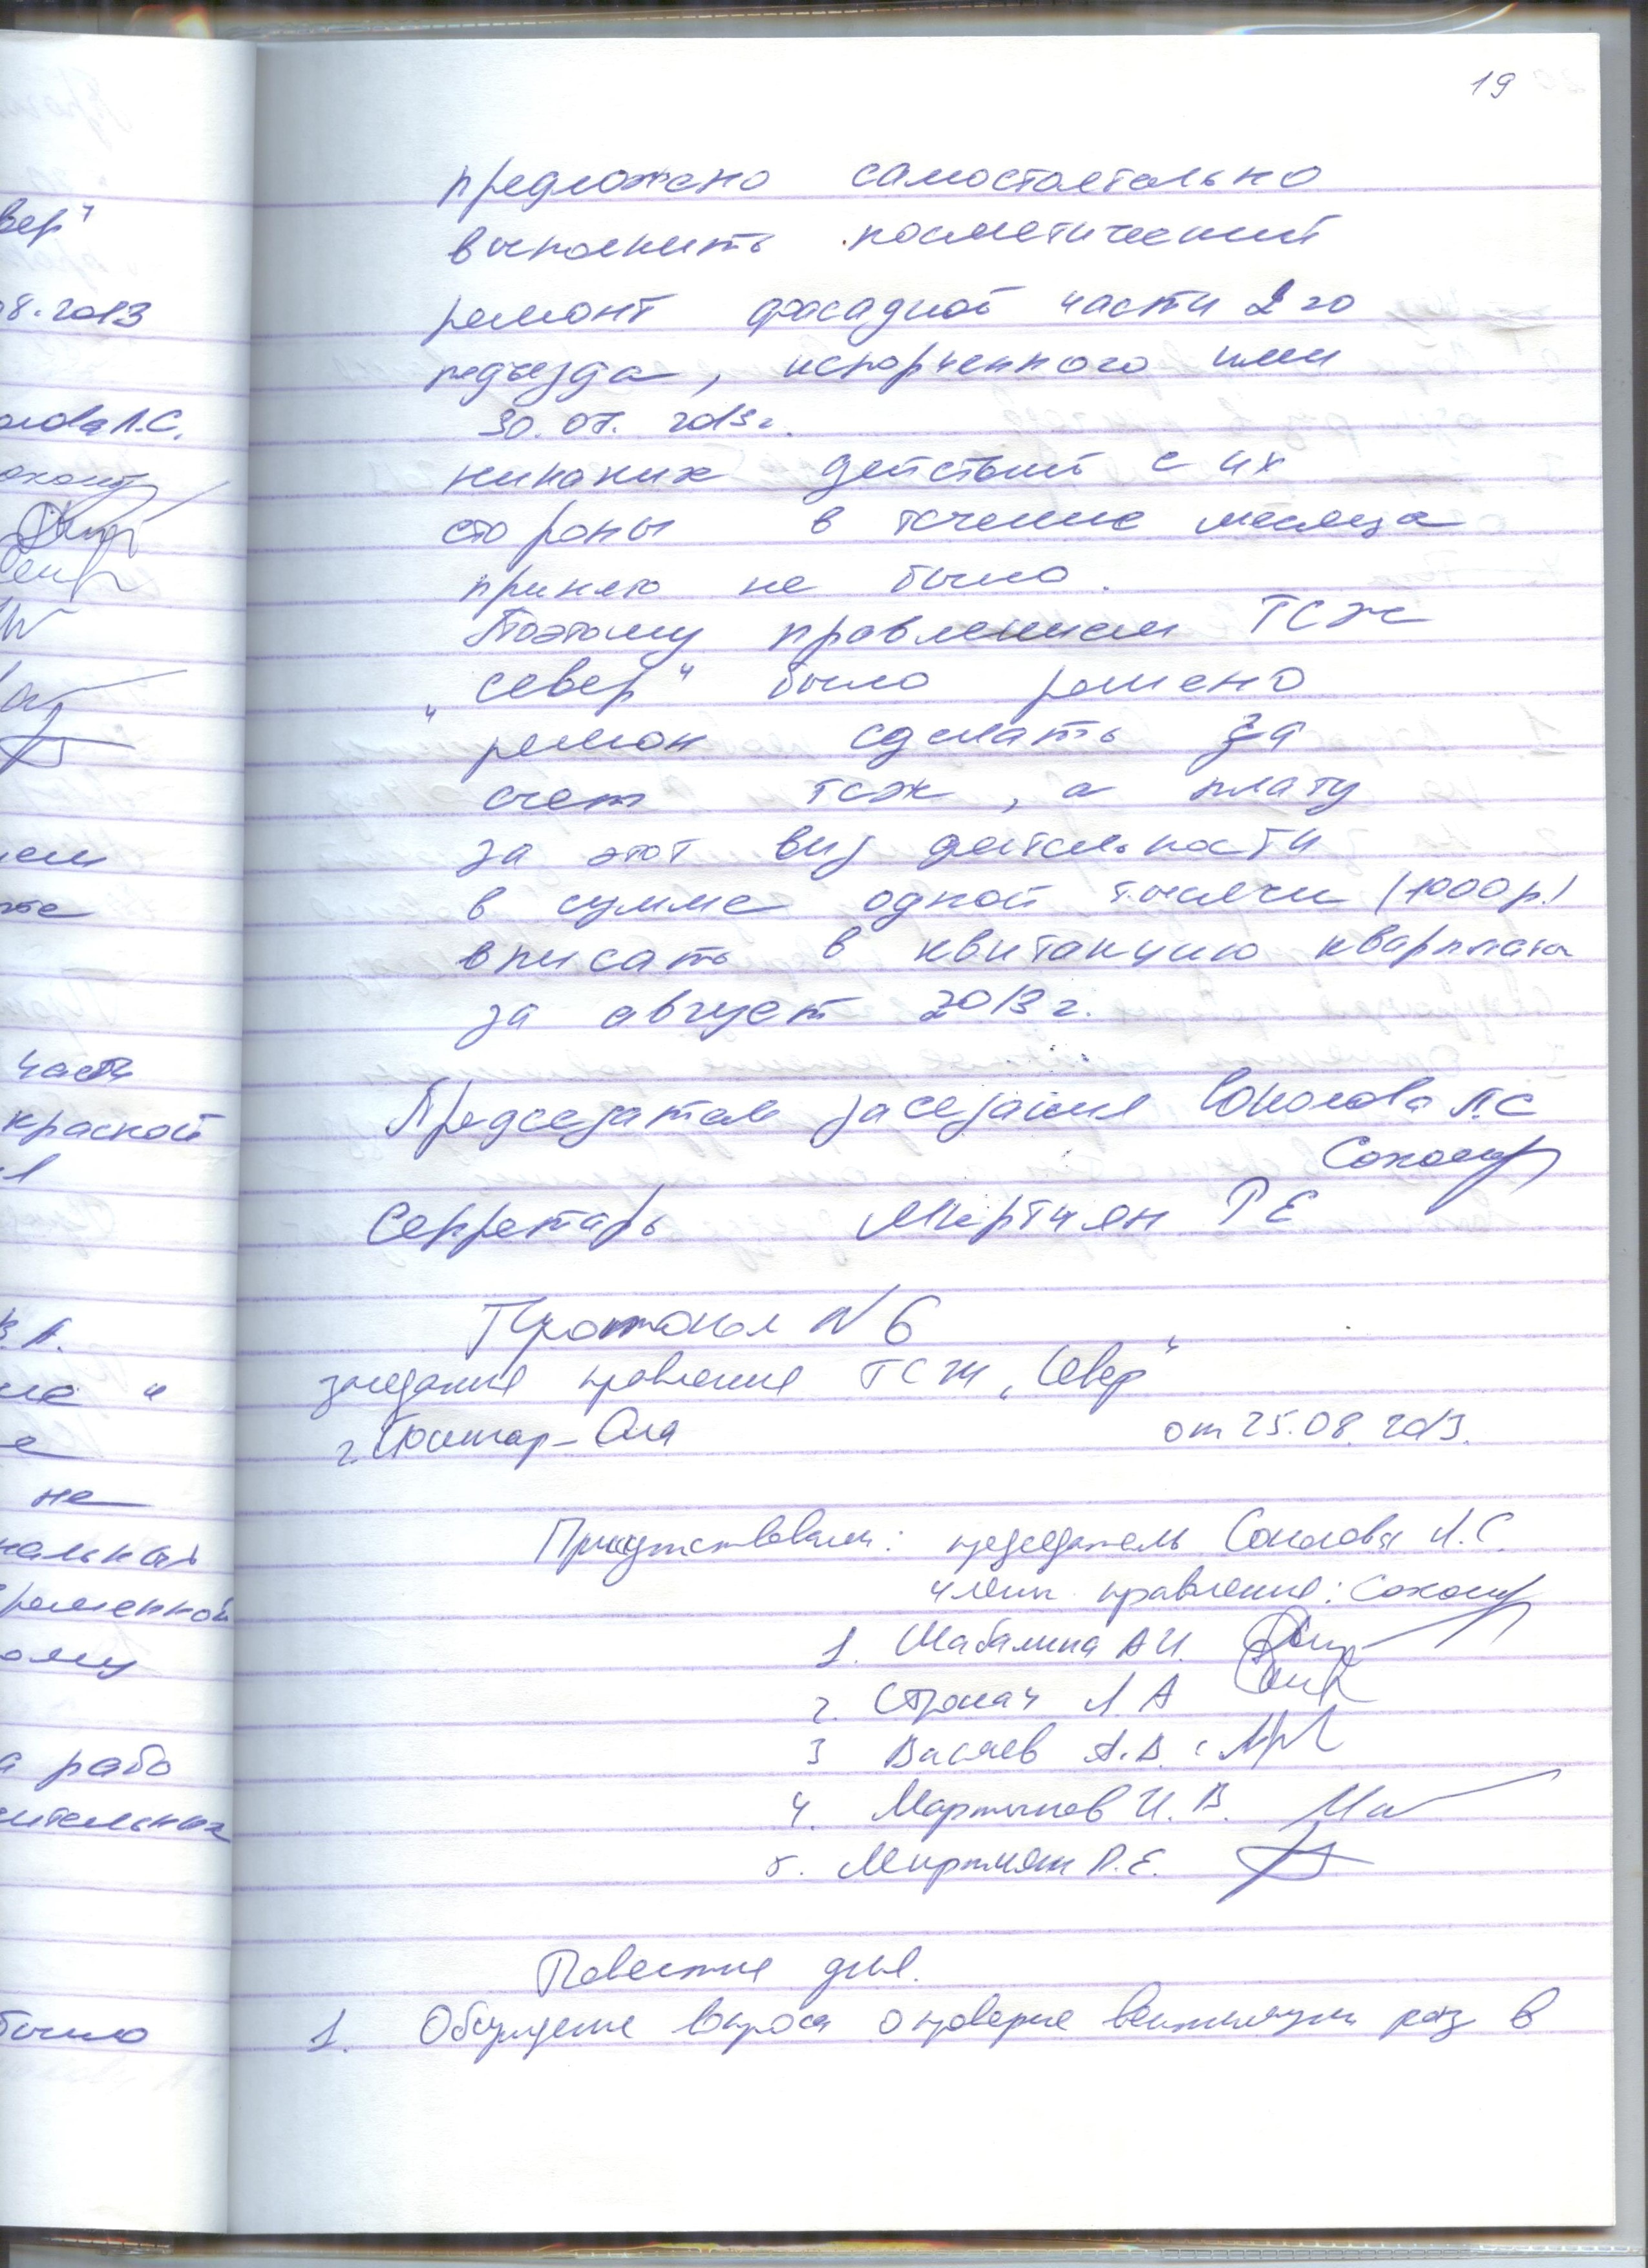 19
предложено самостоятельно
выполнить косметический
ремонт фасадной части 2го
подъезда, испорченного ими
30.07.2013г.
никаких действий с их
стороны в течение месяца
принято не было.
Поэтому правлением ТСЖ
„Север“ было решено
ремон сделать за
счет ТСЖ, а плату
за этот вид деятельности
в сумме одной тысячи (1000р.)
вписать в квитанцию квартплаты
за август 2013г.
Председатель заседания Соколова Л.С
Секретарь Миртчян Р Е
Протокол N 6
заседание правления ТСЖ „Север“
г. Йошкар-Ола от 25.08.2013.
Присутствовали: председатель Соколова Л.С.
члены правления:
1. Шабалина А И.
2. Строкач Л. А
3 Васяев А.В.
4. Мартынов И. В.
5. Миртчян Р.Е.
Повестка дня.
1. Обсуждение вопроса о проверке вентиляции раз в
вер“
8.2013
Л.С.
части
краской
л
В.А.
и
е
не
ременной
ому
а рабо
ительных
было